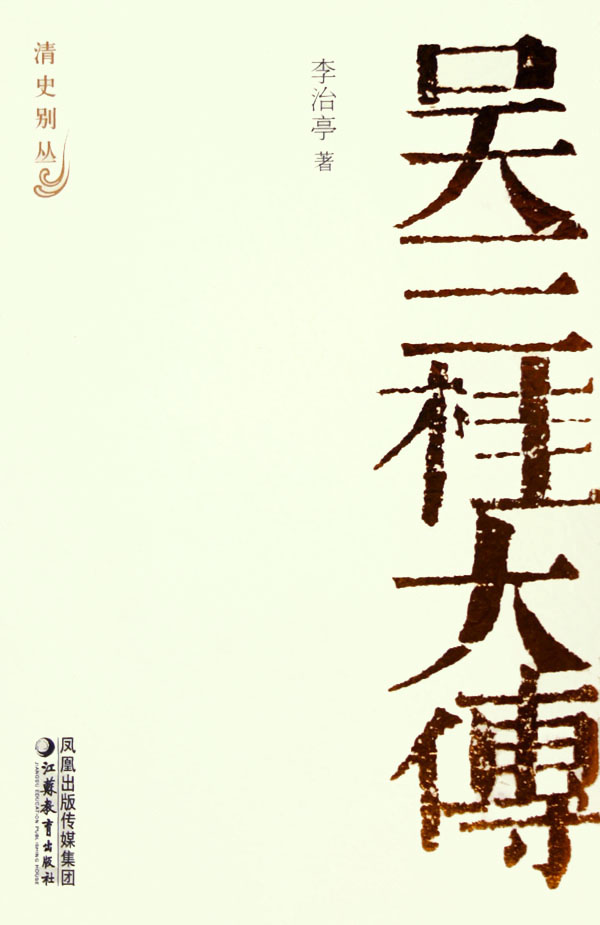 吴三桂大傳
李治亭 著
清史别丛
凤凰出版传媒集团
江蘇教育出版社
JIANGSU EDUCATION PUBLISHING HOUSE